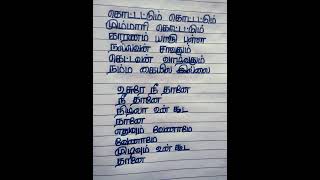 கொட்டட்டும் கொட்டட்டும்
மும்மாரி கொட்டட்டும்
காரணம் யாரு புள்ள
நல்லவன் சாவதும்
கெட்டவன் வாழ்வதும்
நம்ம கையில் இல்லை
உசுரே நீ தானே
நீ தானே
நிழலா உன் கூட
நானே
எதுவும் வேணாமே
வேணாமே
முடிவும் உன் கூட
தானே